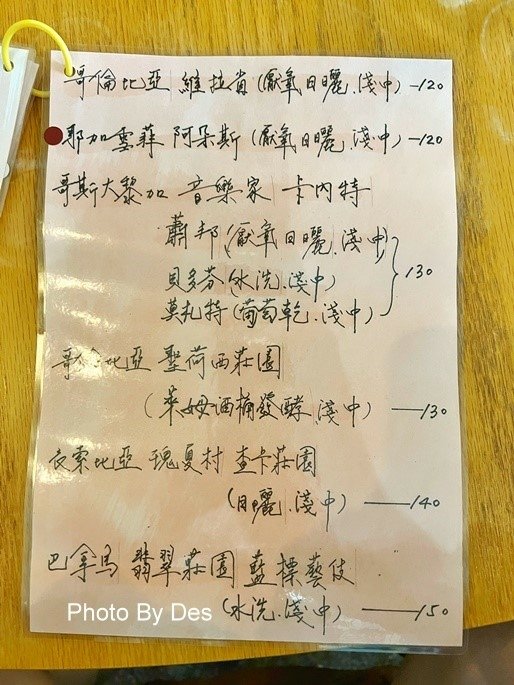 哥倫比亞 維拉省 (厭氧日曬.淺中) —120
耶加雪菲 阿朵斯 (厭氧日曬.淺中) —120
哥斯大黎加 音樂家 卡內特
蕭邦 (厭氧日曬.淺中)
貝多芬 (水洗.淺中) 130
莫札特 (葡萄乾.淺中)
哥倫比亞 聖荷西莊園
(萊姆酒桶發酵.淺中) —130
衣索比亞 瑰夏村 查卡莊園
(日曬.淺中) —140
巴拿馬 翡翠莊園 藍標藝伎
(水洗.淺中) —150
Photo By Des